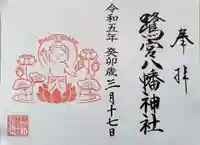 奉拝
鷺宮八幡神社
令和五年 癸卯歳 三月十七日